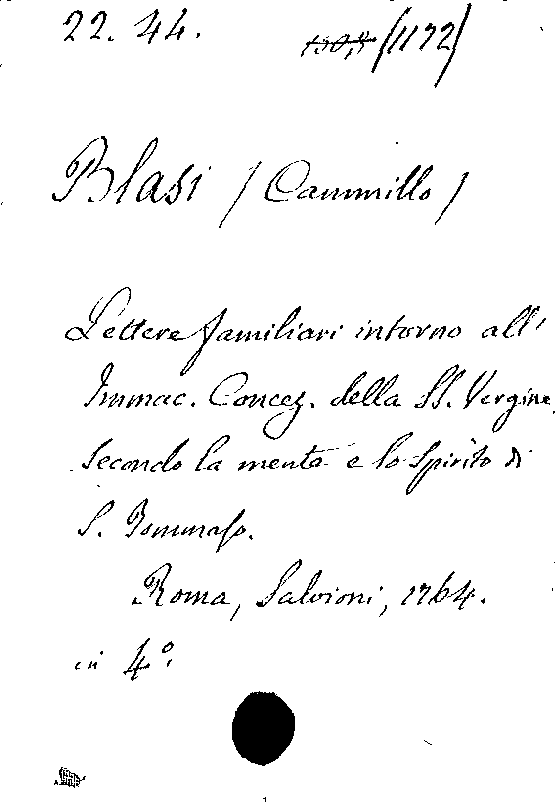 22. 44. (1172)
Blasi (Cammillo)
Lettere familiari intorno all'
Immac. Concez. della SS. Vergine
secondo la mente e lo Spirito di
S. Tommaso.
Roma, Salvioni, 1764.
in 4°.